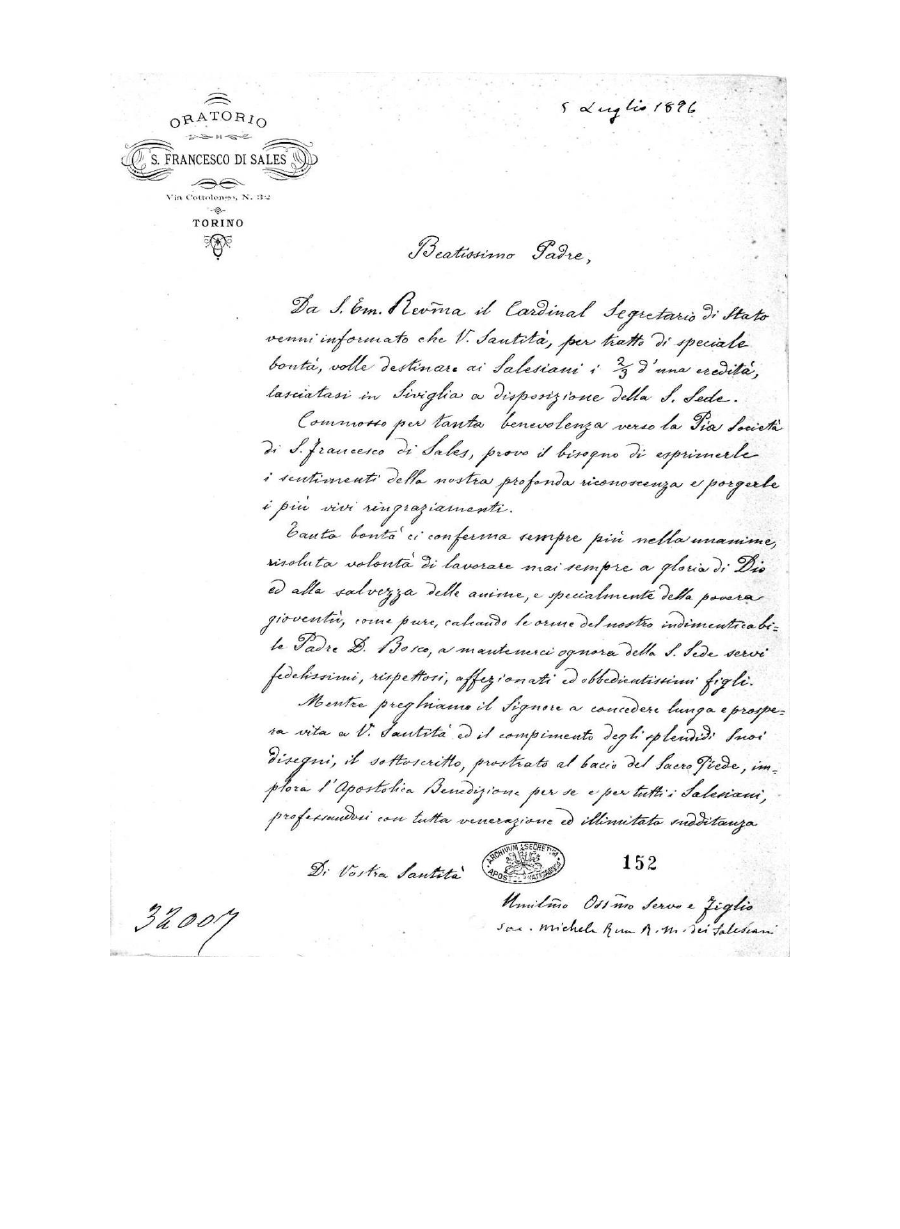 ORATORIO
DI
S. FRANCESCO DI SALES
Via Cottolengo, N. 32
TORINO
5 Luglio 1896
Beatissimo Padre,
Da S. Em. Revm̃a il Cardinal Segretario di Stato
venni informato che V. Santità, per tratto di speciale
bontà, volle destinare ai Salesiani i 2/3 d'una eredità,
lasciatasi in Siviglia a disposizione della S. Sede.
Commosso per tanta benevolenza verso la Pia Società
di S. Francesco di Sales, provo il bisogno di esprimerle
i sentimenti della nostra profonda riconoscenza e porgerle
i più vivi ringraziamenti.
Tanta bontà ci conferma sempre più nella unanime,
risoluta volontà di lavorare mai sempre a gloria di Dio
ed alla salvezza delle anime, e specialmente della povera
gioventù, come pure, calcando le orme del nostro indimenticabi=
le Padre D. Bosco, a mantenerci ognora della S. Sede servi
fedelissimi, rispettosi, affezionati ed obbedientissimi figli.
Mentre preghiamo il Signore a concedere lunga e prospe=
ra vita a V. Santità ed il compimento degli splendidi Suoi
disegni, il sottoscritto, prostrato al bacio del Sacro Piede, im=
plora l'Apostolica Benedizione per se e per tutti i Salesiani,
professandosi con tutta venerazione ed illimitata sudditanza
Di Vostra Santità
ARCHIVUM SECRETUM
APOST. VATICANUM
152
Umilm̃o Ossm̃o Servo e Figlio
Sac. Michele Rua R. M. dei Salesiani
32007